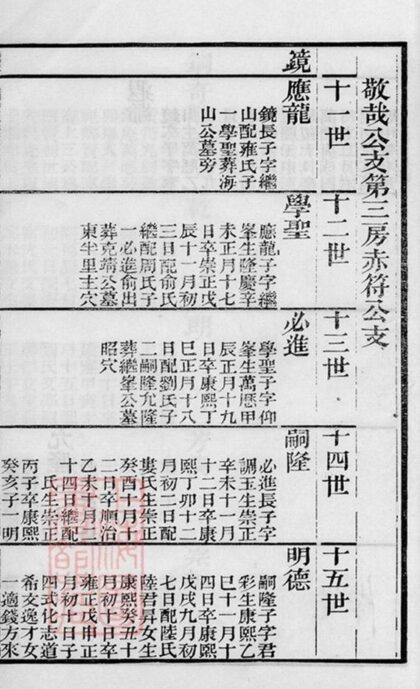 敬哉公支第三房赤符公支
十一世
十二世
十三世
十四世
十五世
鏡
應龍
鏡長子字繼
山配雍氏子
一學聖葬海
山公墓旁
學聖
應龍子字繼
峯生隆慶辛
未正月十七
日卒崇正戊
辰十一月初
三日配俞氏
繼配周氏子
一必進俞出
葬克靖公墓
東半里主穴
必進
學聖子字仰
峯生萬厯甲
辰正月十九
日卒康熙丁
巳正月十八
日配劉氏子
二嗣隆允隆
葬繼峯公墓
昭穴
嗣隆
必進長子字
調玉生崇正
辛未十一月
十二日卒康
熙丁卯十二
月初二日配
婁氏生崇正
癸酉十月十
二日卒順治
乙未十月二
十四日繼配
氏生崇正
丙子卒康熙
癸亥子一明
明德
嗣隆子字君
彩生康熙乙
巳十一月十
四日卒康熙
戊戌九月初
七日配陸氏
陸君昇女生
康熙癸丑十
月初十日卒
雍正戊申正
月初十日子
四式化志道
希文逸才女
一適錢方來